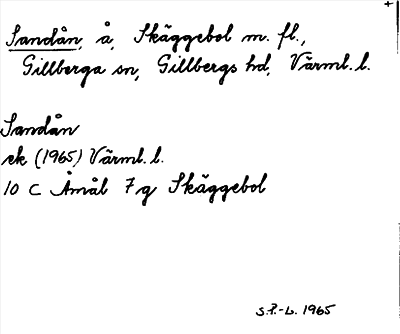 Sandån, å, Skäggebol m. fl.,
Gillberga sn, Gillbergs hd, Värml. l.
Sandån
ek (1965) Värml. l.
10 C Åmål 7 g Skäggebol
S.P.-L. 1965